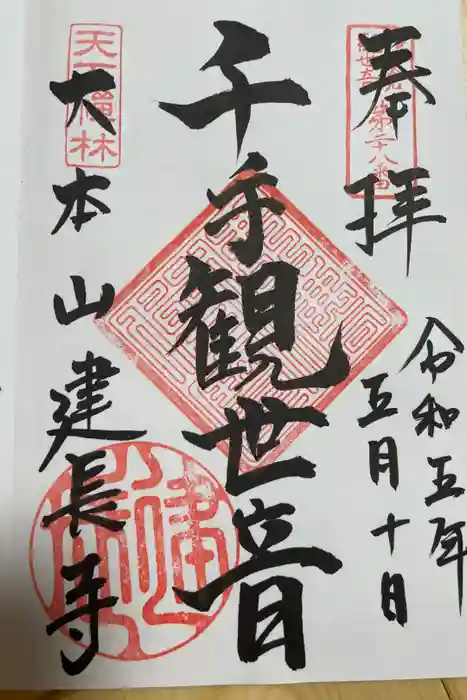 奉拝
令和五年
五月十日
千手観世音
大本山建長寺
天下禅林
第二十八番